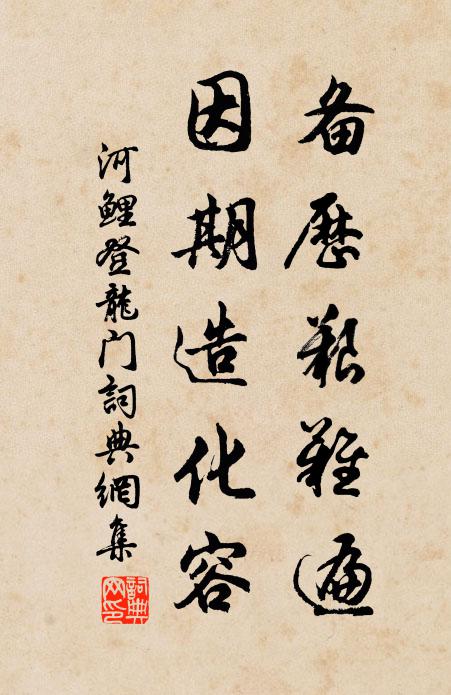 备历艱難遍
因期造化容
河鲤登龍门詞典網集
詞典网印